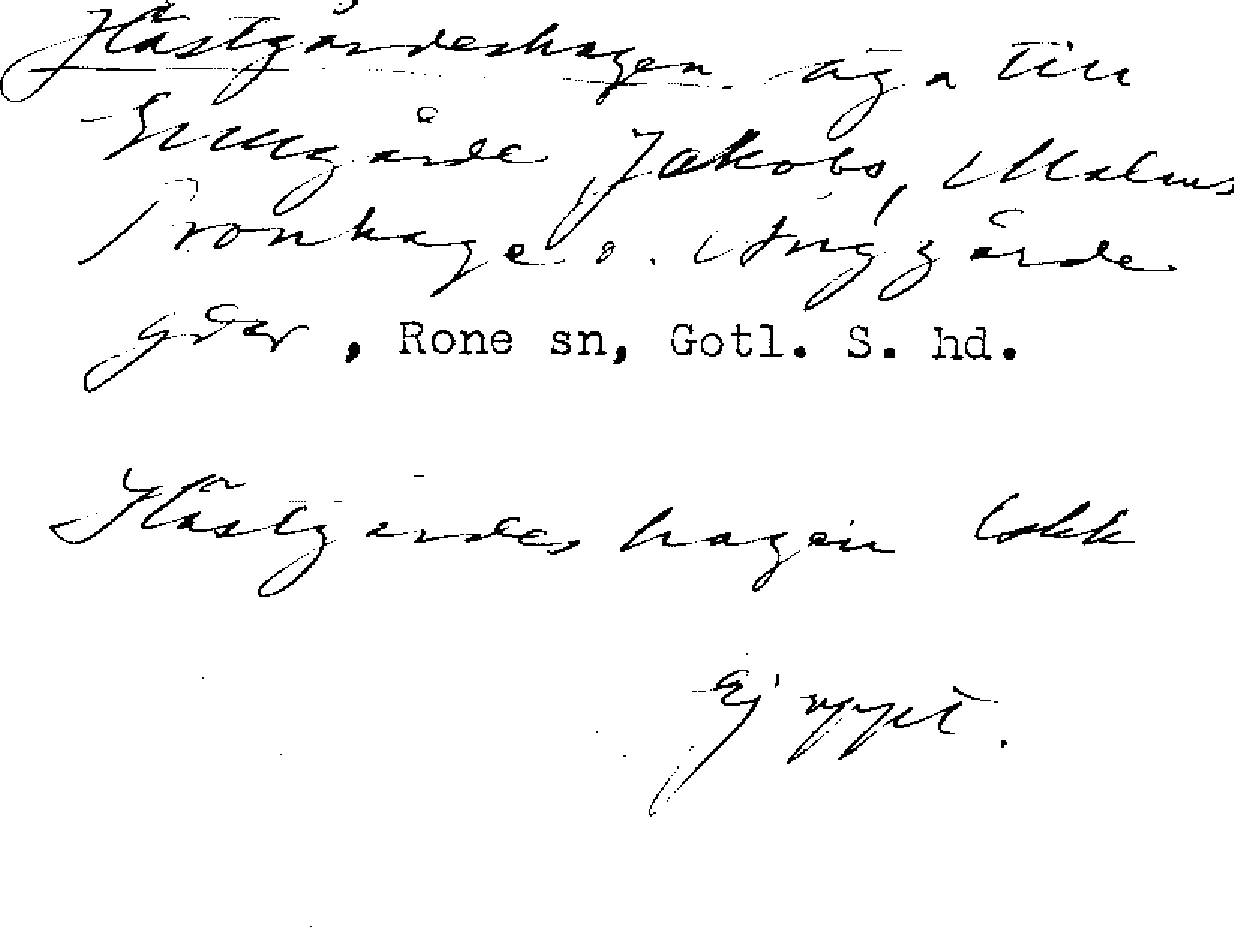 Hästgårdeshagen äga till
Smågårde, Jakobs, Malms
Tronhage o. Änggårde
gdar, Rone sn, Gotl. S. hd.
Hästgårdes hagen Ekk
Ej uppt.